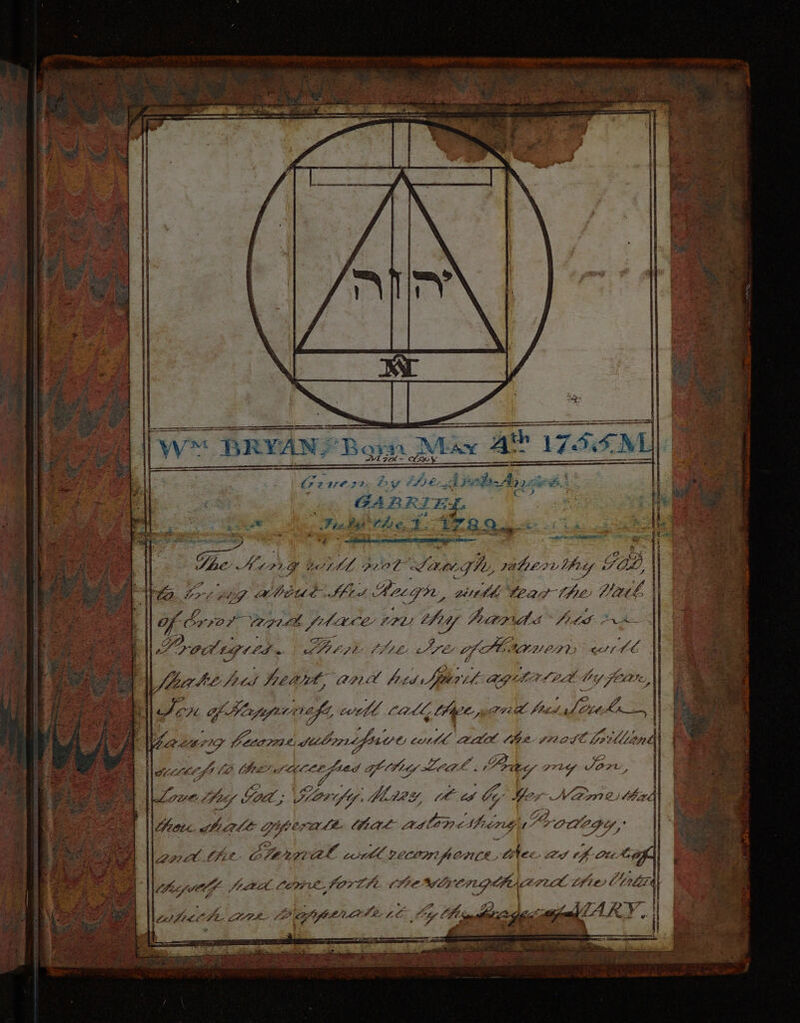 יהוה
Wᴹ BRYAN, Born May 4th 1755 M
Mid-day
Given by the Arch-Angel
GABRIEL
July the 1. 1789
The King will not Laugh, when thy GOD,
to bring about His Reign, will tear the Vail
of Error and place in thy hands his
Prodigies. Then the Ire of Heaven will
Shake his heart, and his Spirit agitated by fear,
Son of Happiness, will call thee, and his Soul
having become submissive will add the most brilliant
success to the successes of thy Zeal. Pray my Son,
Love thy God; Glorify Mary, it is by Her Name that
thou shalt opperate that astonishing Prodegy;
and the Eternal will recompence thee as if out of
thyself had come forth the strength and the Virtue
which are to opperate it by the Prayer of MARY.